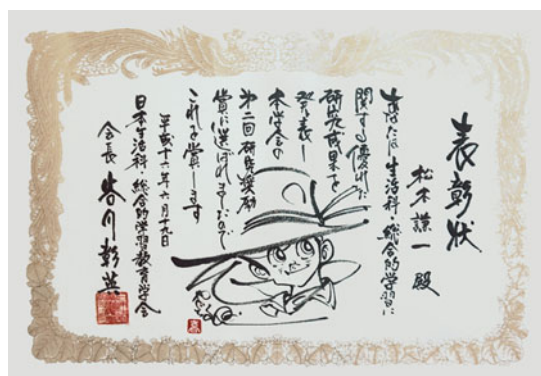 表彰状
松木謙一 殿
あなたは生活科・総合的学習に
関する優れた
研究成果を
発表し
本学会の
第二回研究奨励
賞に選ばれましたので
これを賞します
平成十六年六月十九日
日本生活科・総合的学習教育学会
会長 谷川彰英